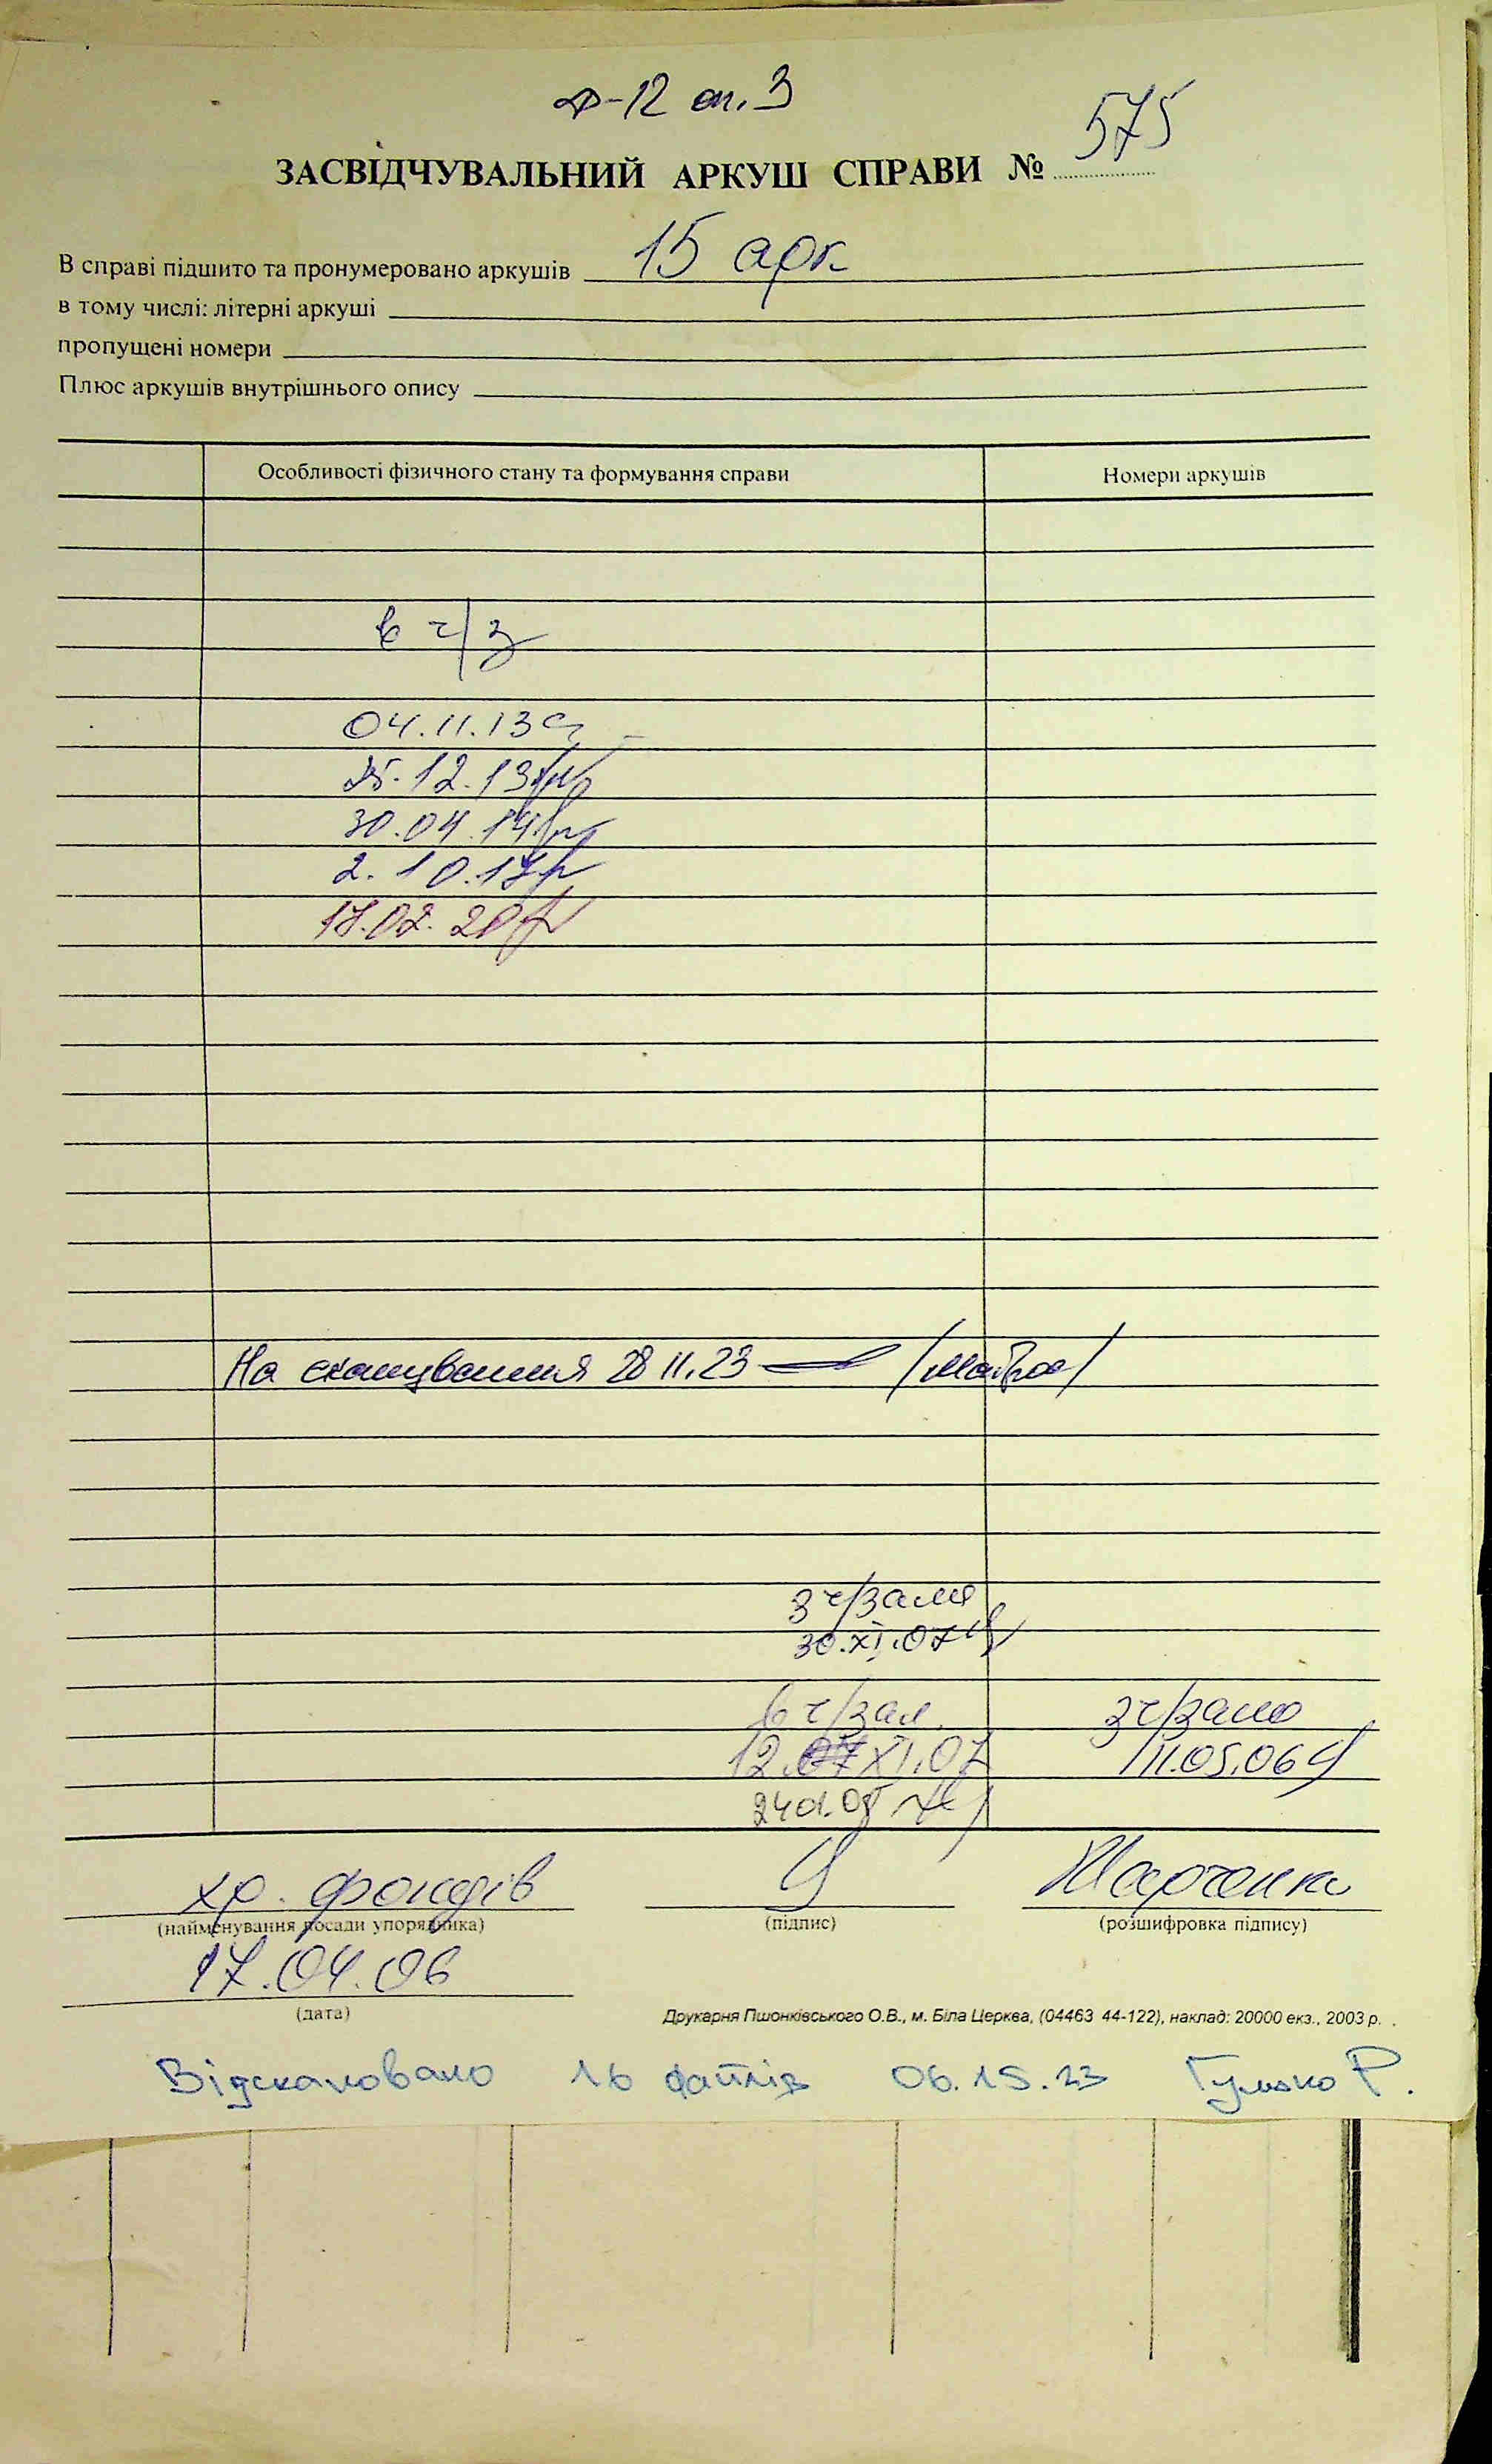 ф-12 оп. 3
ЗАСВІДЧУВАЛЬНИЙ АРКУШ СПРАВИ № 575
В справі підшито та пронумеровано аркушів 15 арк
в тому числі: літерні аркуші
пропущені номери
Плюс аркушів внутрішнього опису
Особливості фізичного стану та формування справи Номери аркушів
в ч/з
04.11.13
25.12.13
30.04.14
2.10.17
17.02.20
На сканування 28 11.23
з ч/залю
30.XI.07
в ч/зал. з ч/залю
12. XI.07 11.05.06
хр. фондів Марченко
(найменування посади упорядника) (підпис) (розшифровка підпису)
17.04.06
(дата) Друкарня Пшонківського О.В., м. Біла Церква, (04463 44-122), наклад: 20000 екз., 2003 р.
Відскановано 16 файлів 06.15.23 Гулько Р.